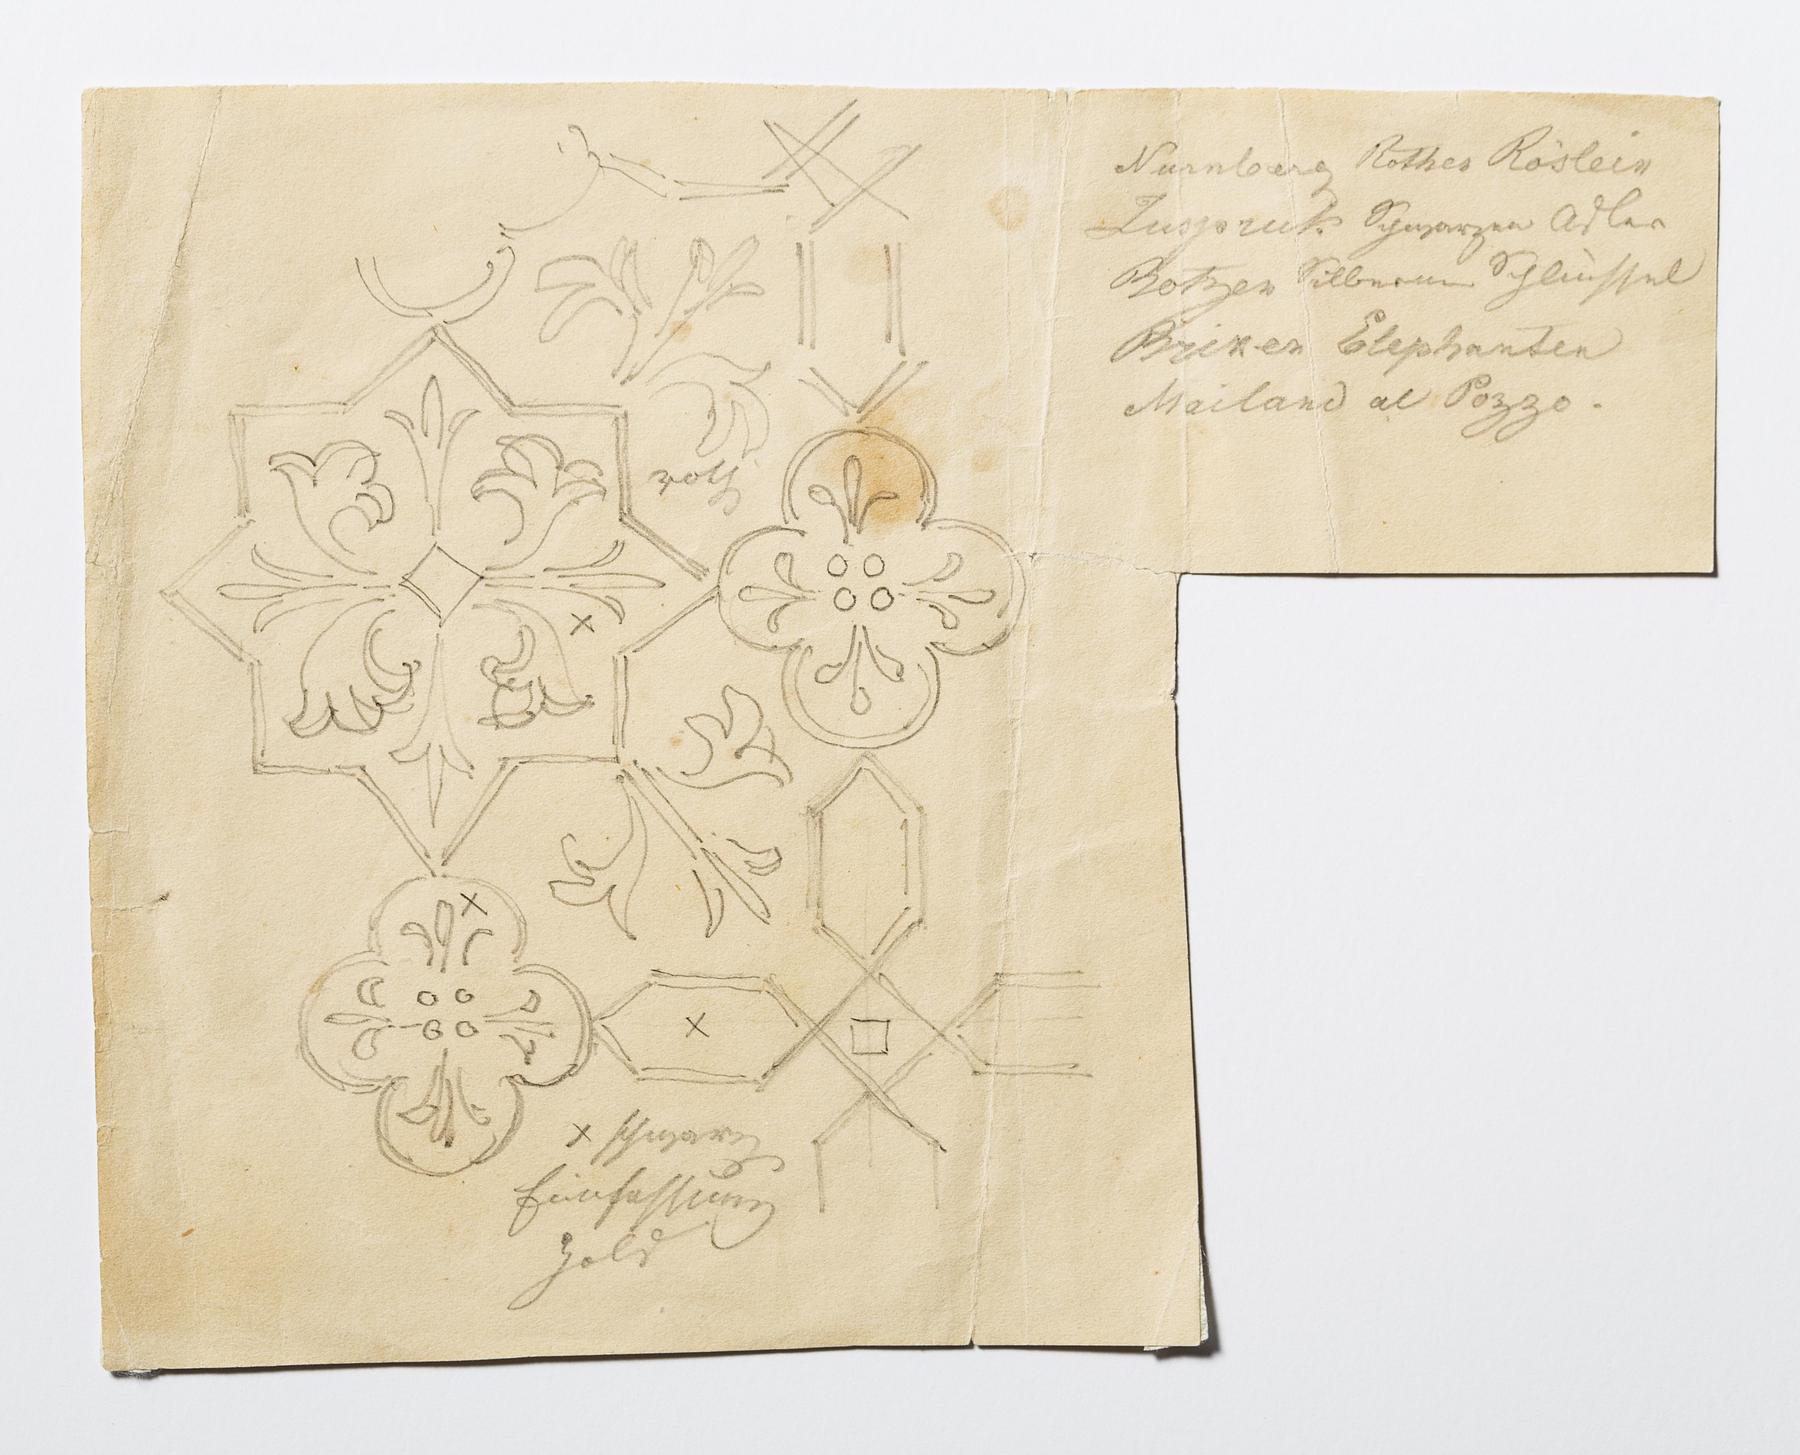 Nurnberg Rothes Röslein
Inspruk Schwarzen Adler
Botzen Silbernen Schlüssel
Brixen Elephanten
Mailand al Pozzo.
roth
x schwarz
Einfassung
Gold
x
x
x